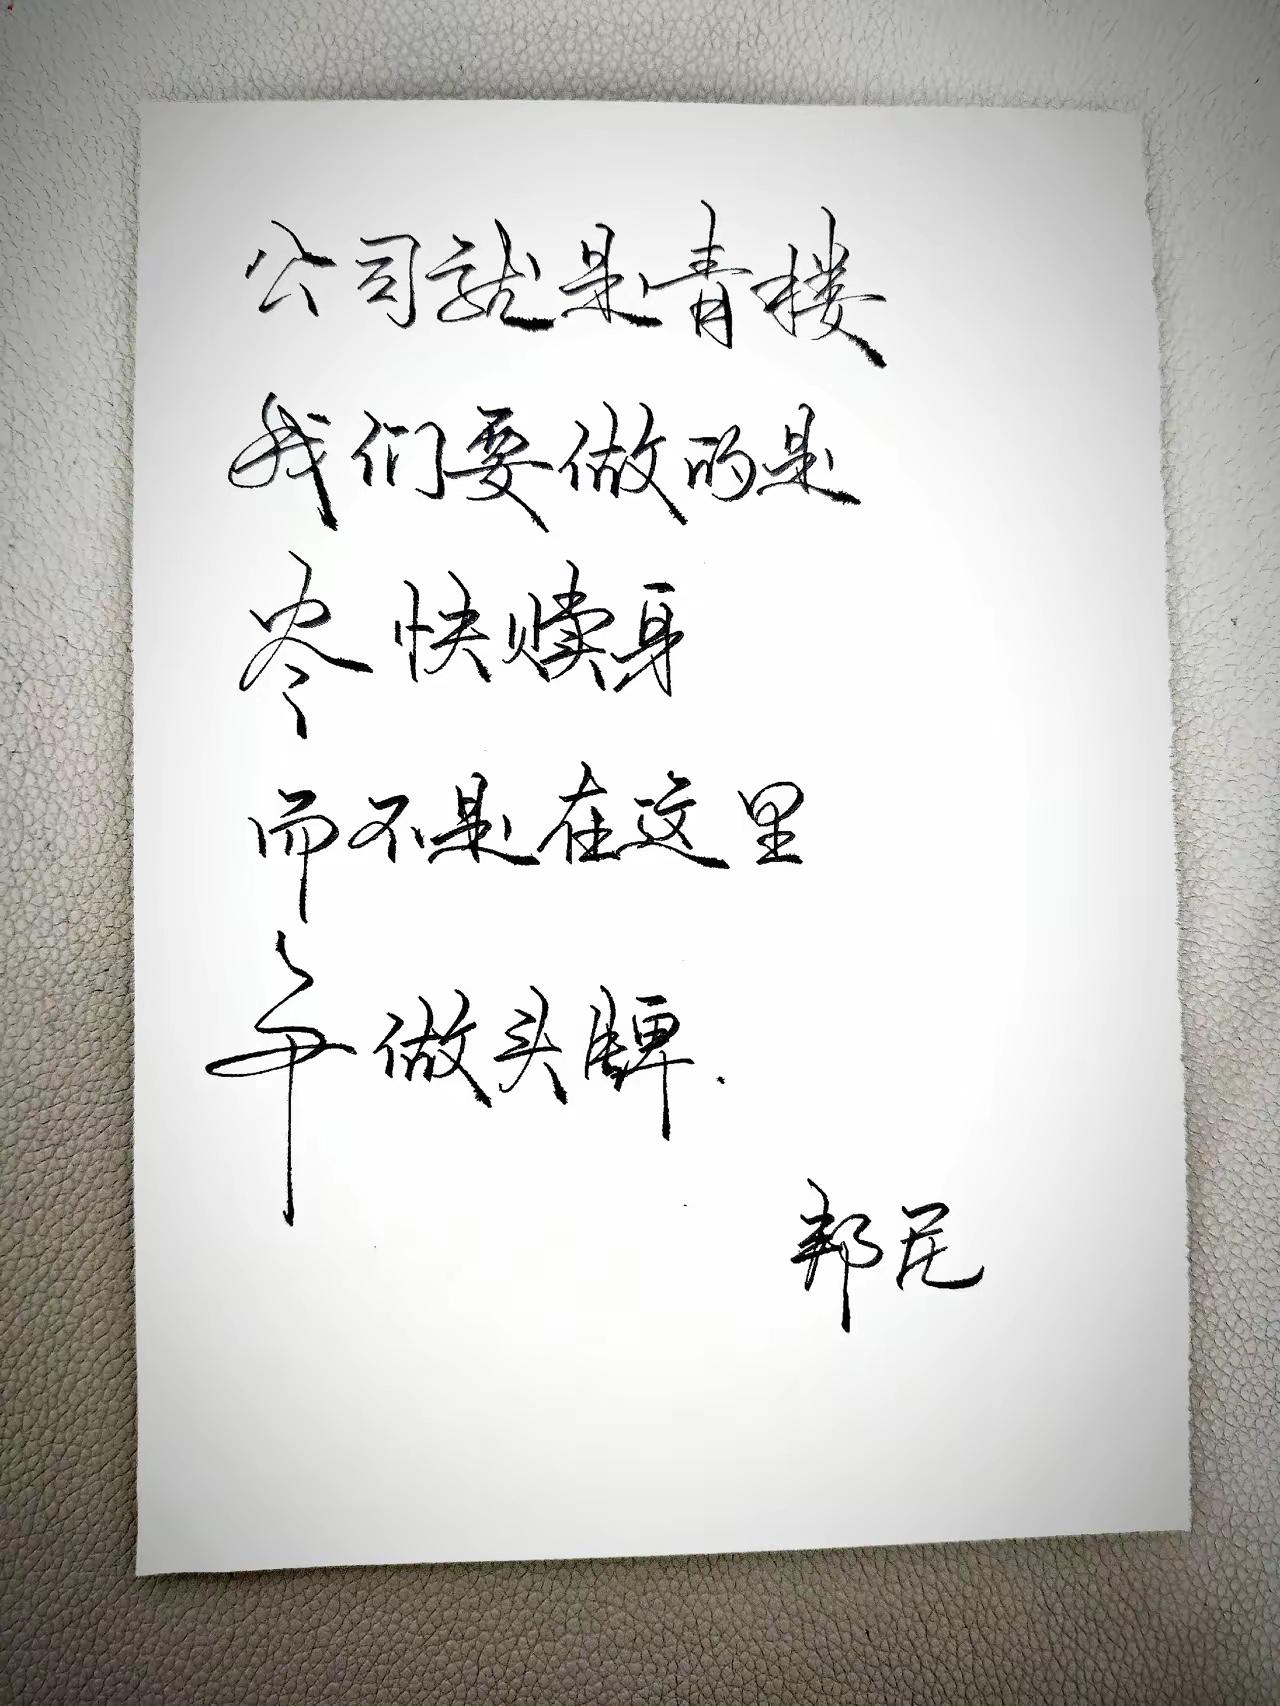 公司就是青楼
我们要做的是
尽快赎身
而不是在这里
争做头牌.
邦尼